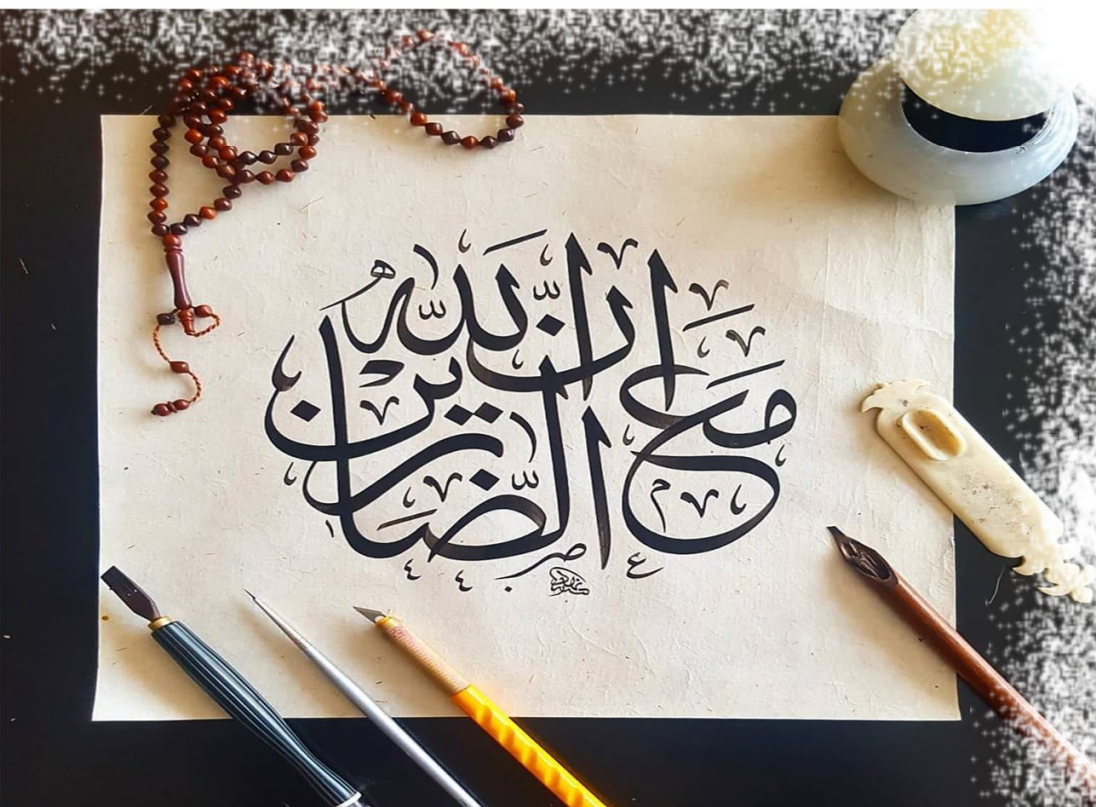 انّ الله مع الصّابرين